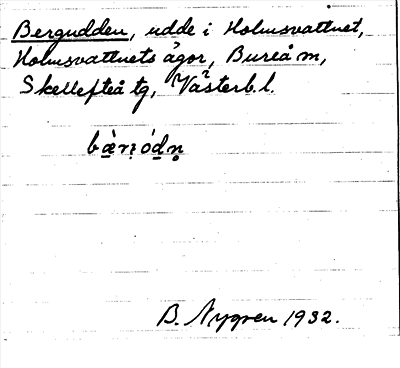 Bergudden, udde i Holmsvattnet,
Holmsvattnets ägor, Bureå m,
Skellefteå tg, Västerb. l.
B. Nygren 1932.